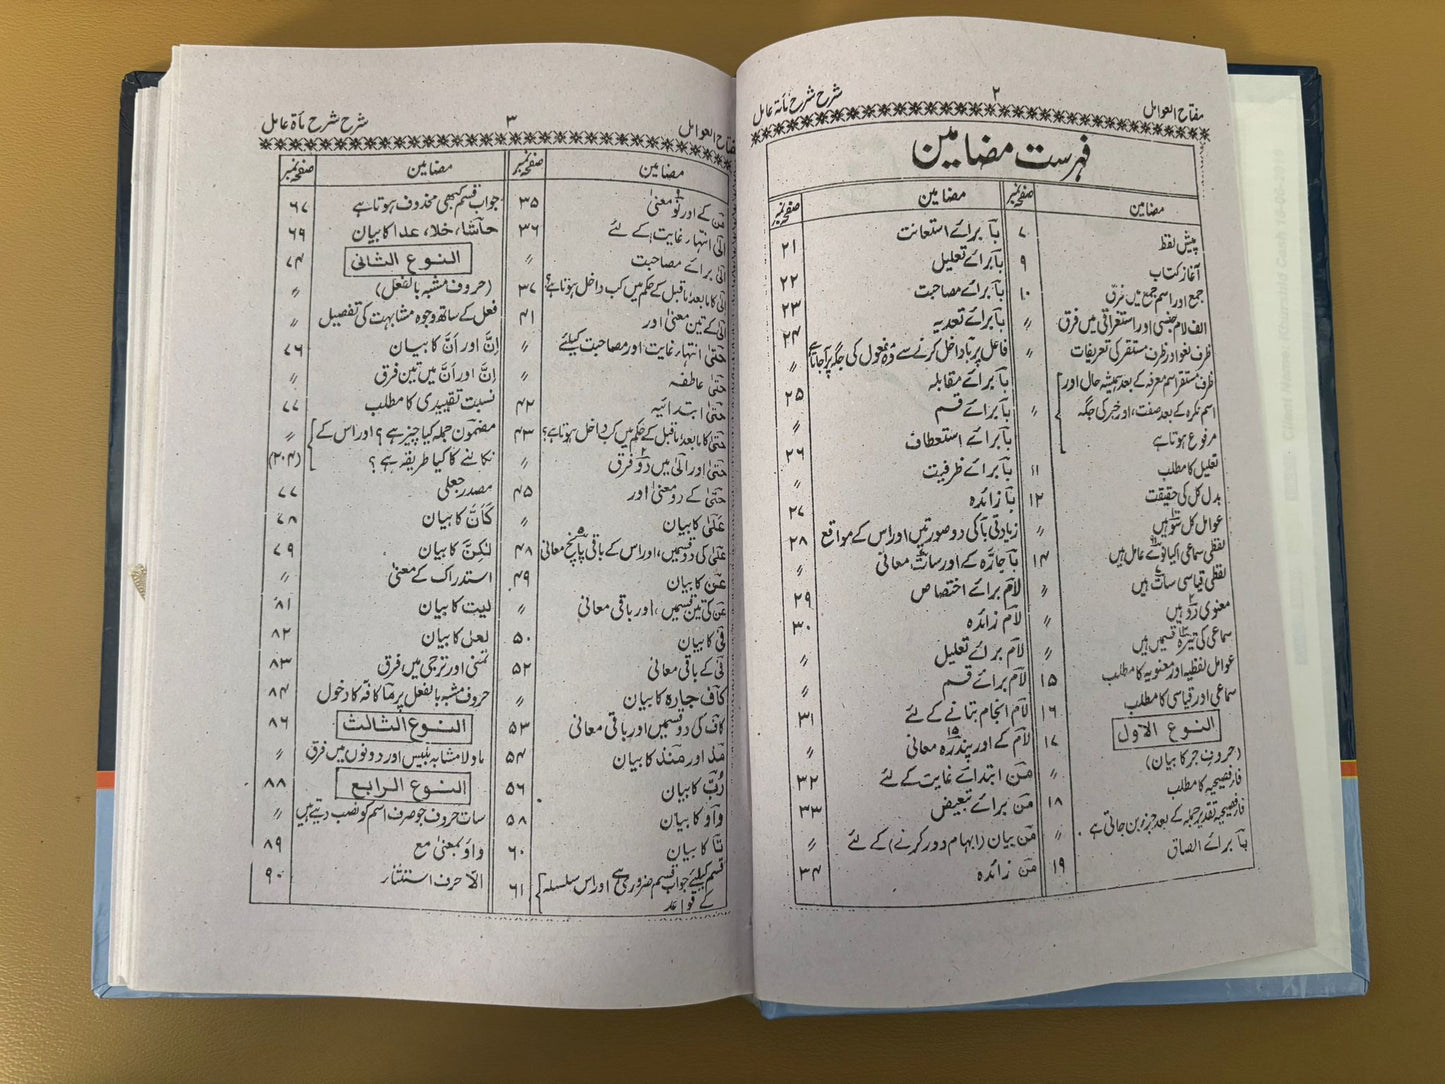 مفتاح العوامل
۲
شرح شرح مأتہ عامل
فہرست مضامین
مضامین
صفحہ نمبر
پیش لفظ
۷
آغاز کتاب
۹
جمع اور اسم جمع میں فرق
۱۰
الف لام جنسی اور استغراقی میں فرق
〃
ظرف لغو اور ظرف مستقر کی تعریفات
〃
ظرف مستقر اسم معرفہ کے بعد ہمیشہ حال اور
اسم نکرہ کے بعد صفت، اور خبر کی جگہ
〃
مرفوع ہوتا ہے
تعلیل کا مطلب
۱۱
بدل کل کی حقیقت
۱۲
عوامل کل سو ہیں
〃
لفظی سماعی اکیانوے عامل ہیں
۱۴
لفظی قیاسی سات ہیں
〃
معنوی دو ہیں
〃
سماعی کی تیرہ قسمیں ہیں
〃
عوامل لفظیہ اور معنویہ کا مطلب
۱۵
سماعی اور قیاسی کا مطلب
۱۶
النوع الاول
۱۷
(حروف جر کا بیان)
〃
فار فصیحیہ کا مطلب
۱۸
فار فصیحیہ تقدیر جملہ کے بعد جزء بن جاتی ہے
〃
بآ برائے الصاق
۱۹
مضامین
صفحہ نمبر
بآ برائے استعانت
۲۱
بآ برائے تعلیل
۲۲
بآ برائے مصاحبت
۲۳
بآ برائے تعدیہ
۲۴
فاعل پر بآ داخل کرنے سے وہ مفعول کی جگہ پر آجاتا ہے
〃
بآ برائے مقابلہ
۲۵
بآ برائے قسم
بآ برائے استعطاف
۲۶
بآ برائے ظرفیت
〃
بآ زائدہ
۲۷
زیادتی بآ کی دو صورتیں اور اس کے مواقع
۲۸
بآ جارّہ کے اور سات معانی
〃
لآم برائے اختصاص
۲۹
لآم زائدہ
۳۰
لآم برائے تعلیل
〃
لآم برائے قسم
〃
لآم انجام بتانے کے لئے
۳۱
لآم کے اور پندرہ معانی
〃
مِن ابتدائے غایت کے لئے
۳۲
مِن برائے تبعیض
۳۳
مِن بیان (ابہام دور کرنے) کے لئے
〃
مِن زائدہ
۳۴
مفتاح العوامل
۳
شرح شرح مأۃ عامل
مضامین
صفحہ نمبر
مِن کے اور نو معنیٰ
۳۵
الیٰ انتہار غایت کے لئے
۳۶
الیٰ برائے مصاحبت
〃
الیٰ کا مابعد ماقبل کے حکم میں کب داخل ہوتا ہے؟
۳۷
الیٰ کے تین معنیٰ اور
۴۱
حتیٰ انتہار غایت اور مصاحبت کیلئے
〃
حتیٰ عاطفہ
〃
حتیٰ ابتدائیہ
۴۲
حتیٰ کا مابعد ماقبل کے حکم میں کب داخل ہوتا ہے؟
۴۳
حتیٰ اور الیٰ میں دو فرق
〃
حتیٰ کے دو معنیٰ اور
۴۵
علیٰ کا بیان
〃
علیٰ کی دو قسمیں، اور اس کے باقی پانچ معانی
۴۸
عَن کا بیان
۴۹
عَن کی تین قسمیں، اور باقی معانی
〃
فی کا بیان
۵۰
فی کے باقی معانی
۵۲
کاف جارہ کا بیان
〃
کاف کی دو قسمیں اور باقی معانی
۵۳
مذ اور منذ کا بیان
۵۴
رُبّ کا بیان
۵۶
واو کا بیان
۵۸
تا کا بیان
۶۰
قسم کیلئے جواب قسم ضروری ہے اور اس سلسلہ
۶۱
کے قواعد
مضامین
صفحہ نمبر
جواب قسم کبھی محذوف ہوتا ہے
۶۷
حاشا، خلا، عدا کا بیان
۶۹
النوع الثانی
۷۴
(حروف مشبہ بالفعل)
〃
فعل کے ساتھ وجوہ مشابہت کی تفصیل
〃
اِنَّ اور اَنَّ کا بیان
۷۶
اِنَّ اور اَنَّ میں تین فرق
〃
نسبت تقییدی کا مطلب
۷۷
مضمون جملہ کیا چیز ہے؟ اور اس کے
〃
نکالنے کا کیا طریقہ ہے؟
(۲۰۴)
مصدر جعلی
۷۷
کَاَنَّ کا بیان
۷۸
لٰکنَّ کا بیان
۷۹
استدراک کے معنیٰ
〃
لیت کا بیان
۸۱
لعل کا بیان
۸۲
تمنی اور ترجی میں فرق
۸۳
حروف مشبہ بالفعل پر مآ کافہ کا دخول
۸۴
النوع الثالث
۸۶
ما و لا مشابہ بلیس اور دونوں میں فرق
〃
النوع الرابع
۸۸
سات حروف جو صرف اسم کو نصب دیتے ہیں
〃
واؤ بمعنیٰ مع
۸۹
الّا حرف استثنار
۹۰